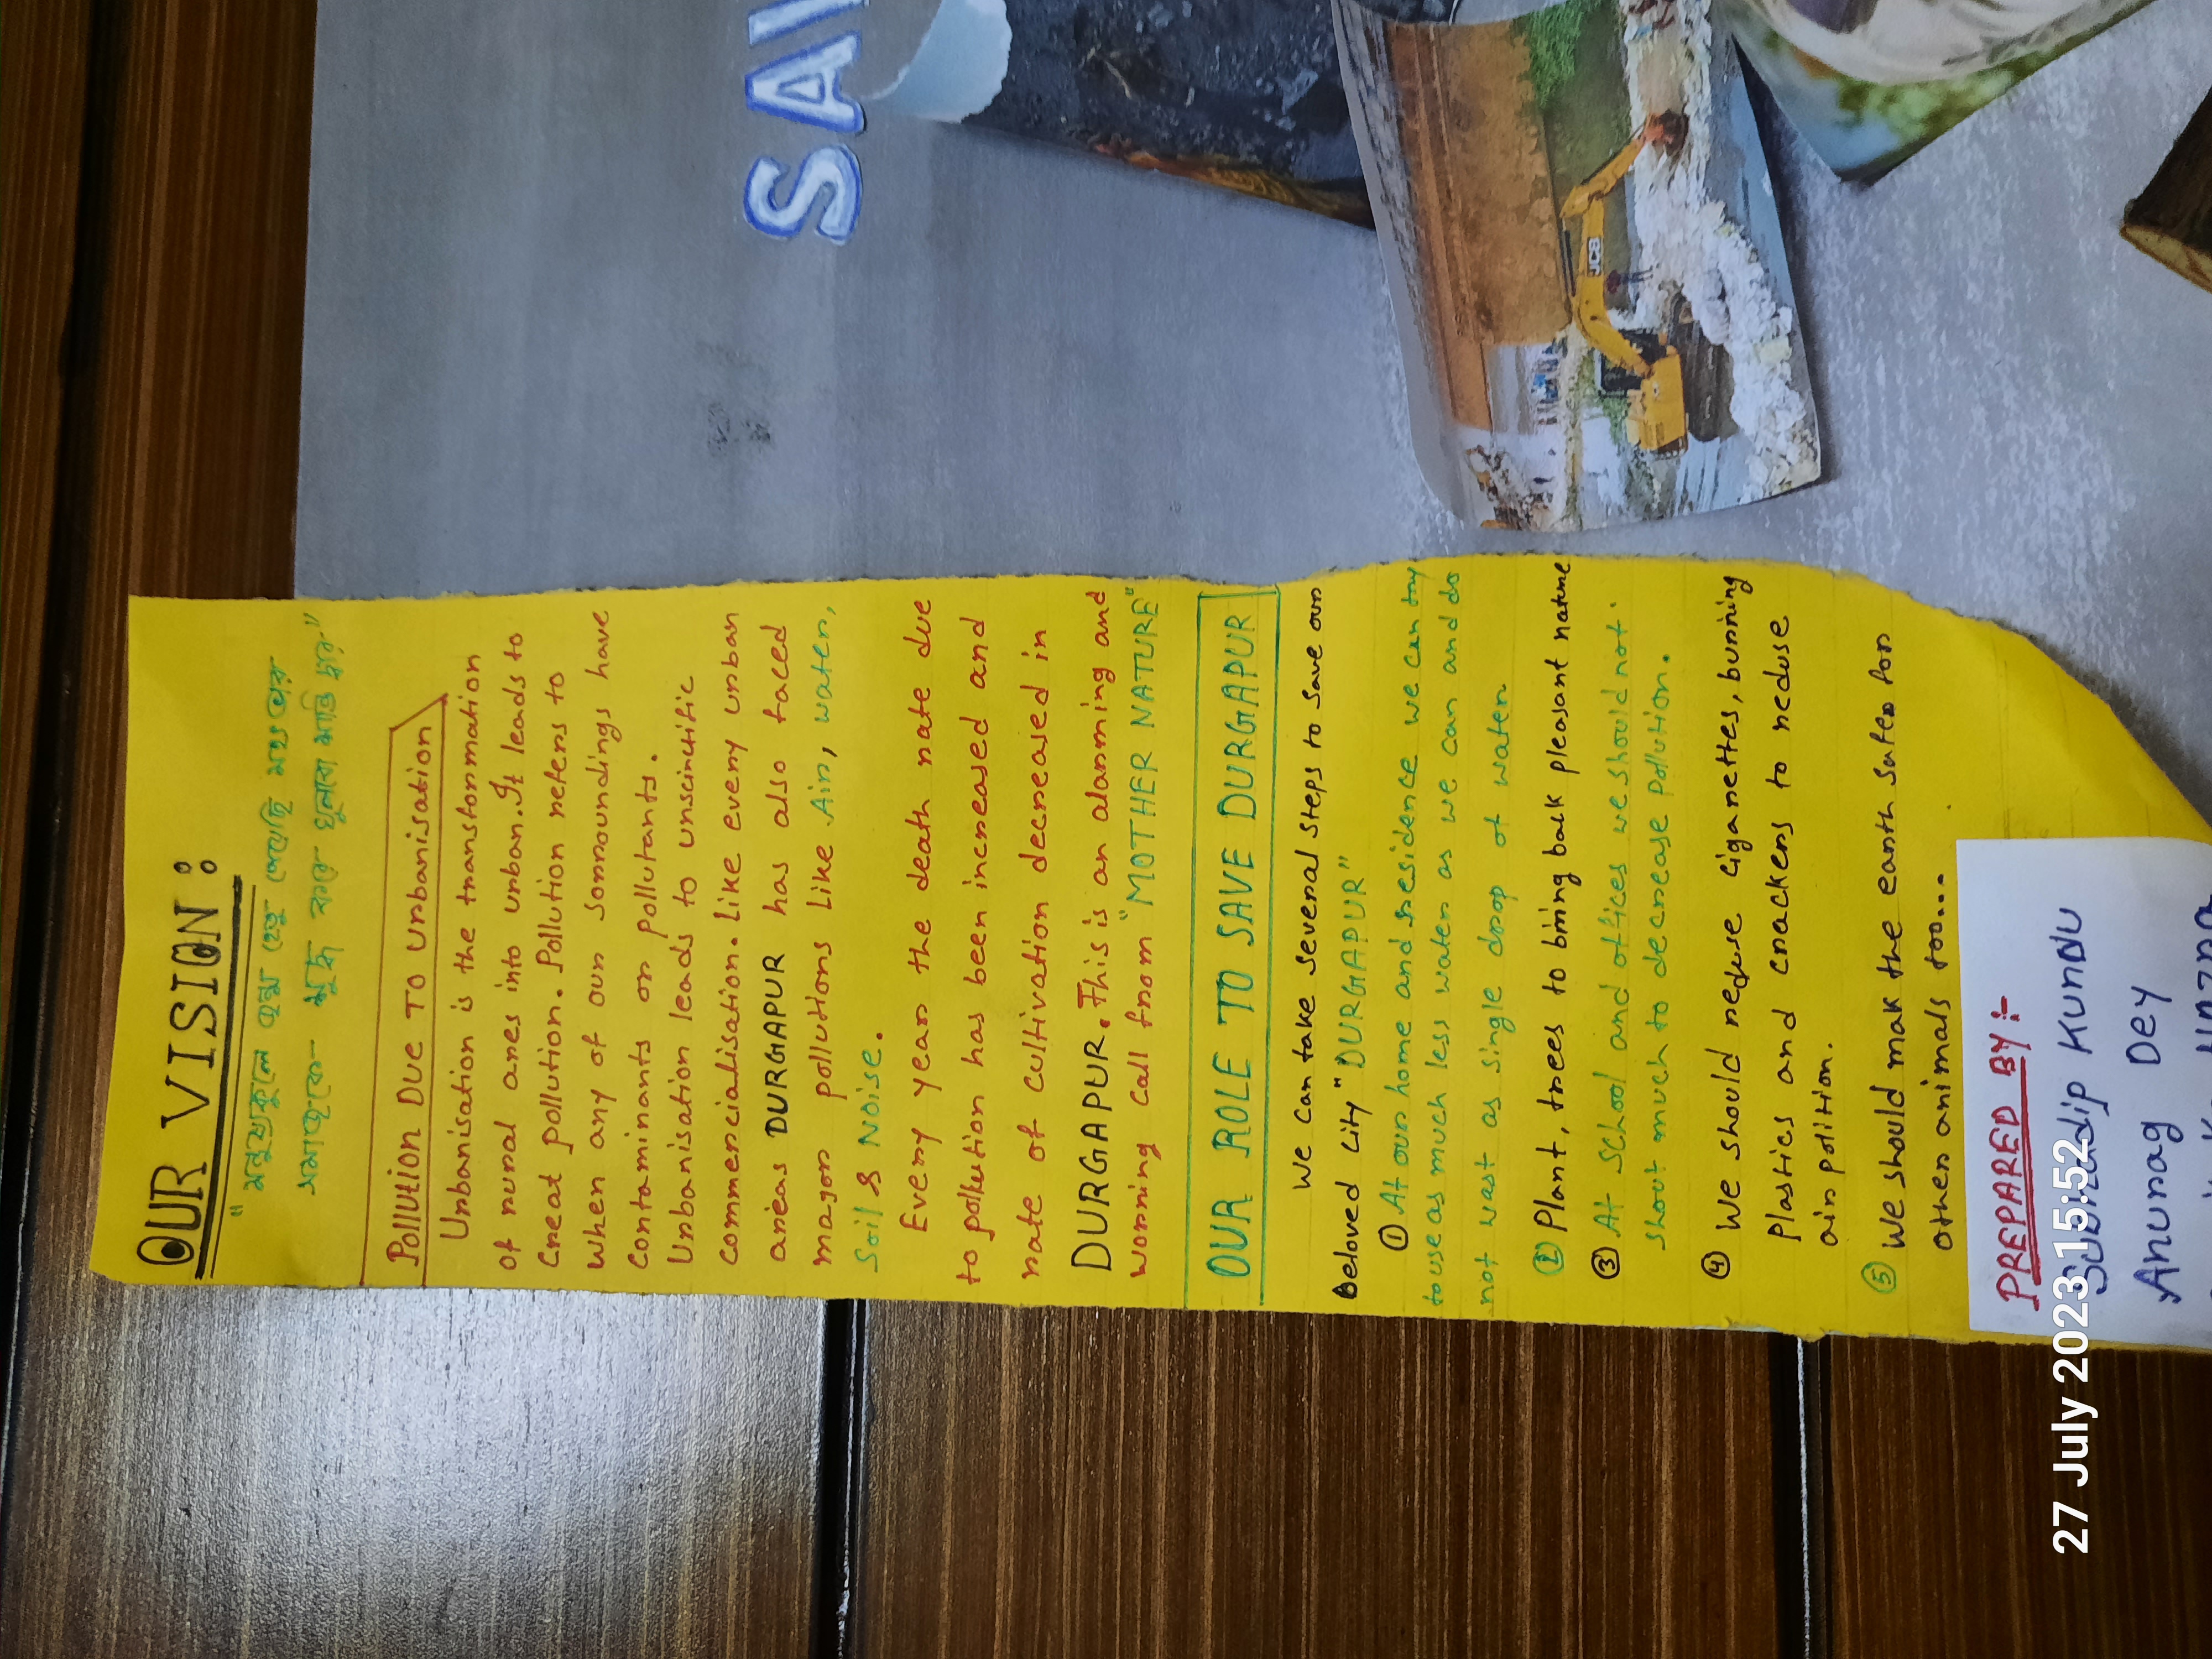 OUR VISION :
"মনুষ্যকুলে জন্ম যেহেতু পেয়েছি মম পর
সমাজকে মুক্ত করে ঘুচাবো মাটি ঋণ"
Pollution Due To Urbanisation
Urbanisation is the transformation
of rural ares into urban. It leads to
Great pollution. Pollution refers to
when any of our sorroundings have
contaminants or pollutants.
Urbanisation leads to unscintific
commercialisation. Like every urban
areas DURGAPUR has also faced
major pollutions like Air, water,
Soil & Noise.
Every year the death rate due
to pollution has been increased and
rate of cultivation decreased in
DURGAPUR. This is an alarming and
worning call from "MOTHER NATURE"
OUR ROLE TO SAVE DURGAPUR
We can take several steps to save our
beloved city "DURGAPUR"
① At our home and residence we can try
to use as much less water as we can and do
not wast as single drop of water.
② Plant, trees to bring back pleasant nature
③ At school and offices we should not
shout much to decrease pollution.
④ We should refuse cigarettes, burning
plastics and crackers to reduse
air polition.
⑤ We should mak the earth safer for
other animals too...
PREPARED BY :-
KUNDU
Anurag Dey
SAV
JCB
27 July 2023 15:52